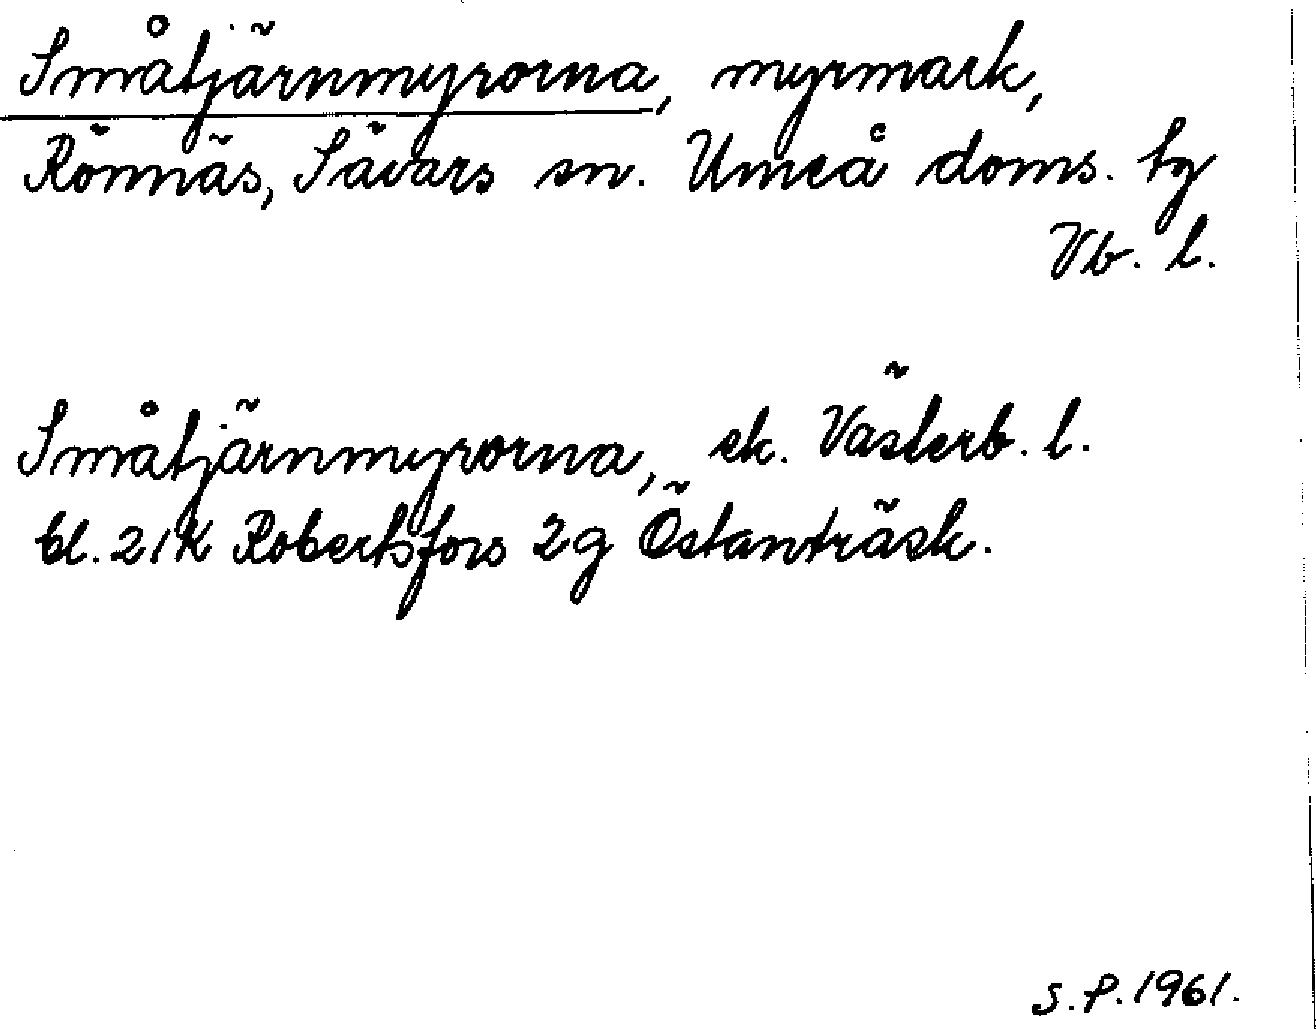 Småtjärnmyrorna, myrmark,
Rönnäs, Sävars sn. Umeå doms. tg
Vb. l.
Småtjärnmyrorna, ek. Västerb. l.
bl. 21K Robertsfors 2g Östanträsk.
S.P. 1961.